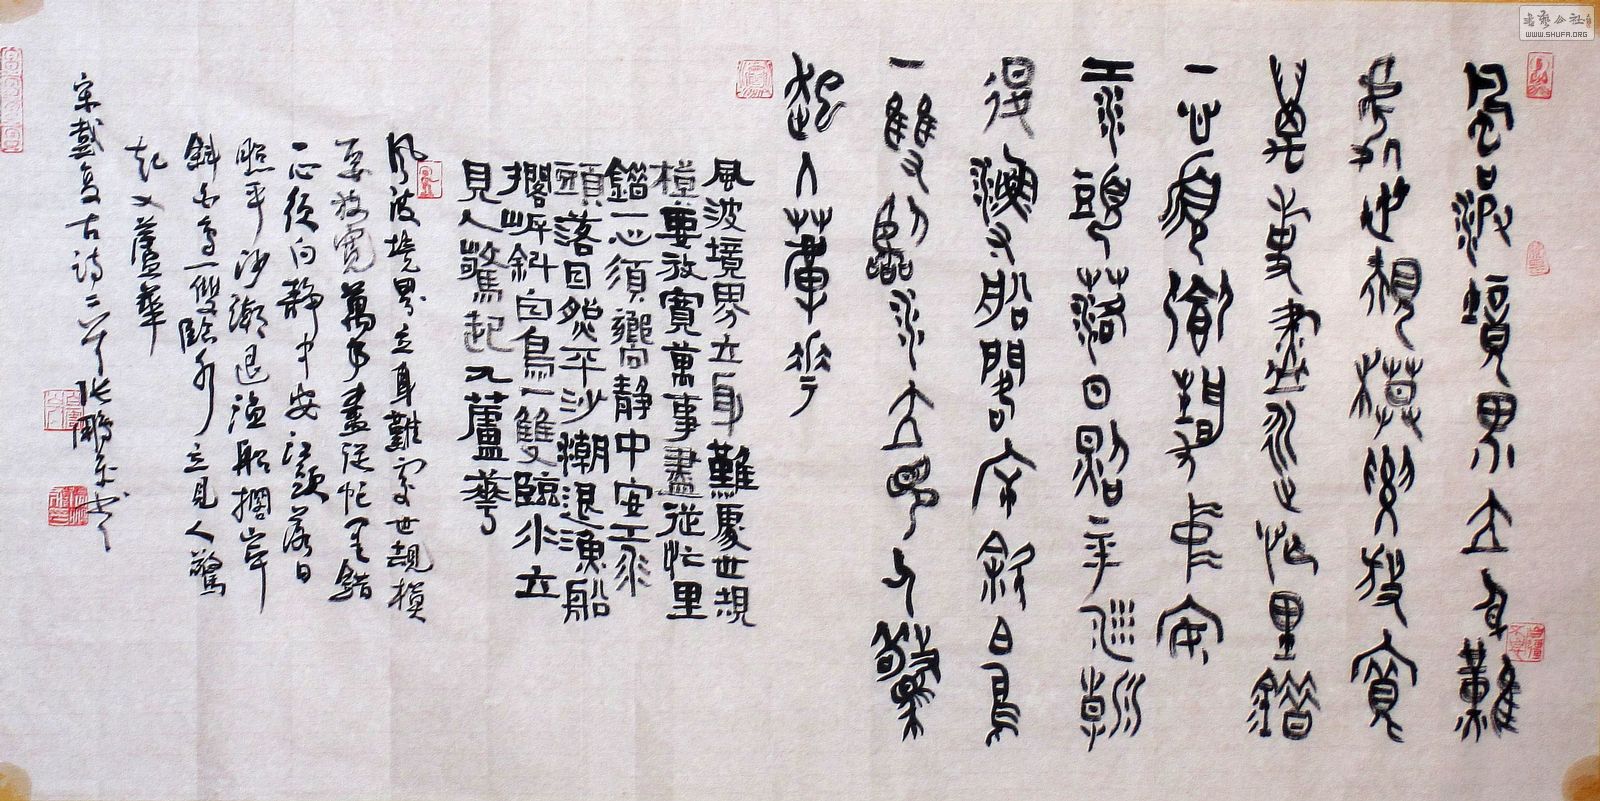 風波境界立身難
處世規模要放寬
萬事盡從忙里錯
一心須向靜中安
江頭落日照平沙潮
退漁船擱岸斜白鳥
一雙臨水立見人驚
起入蘆花
風波境界立身難處世規
模要放寬萬事盡從忙里
錯一心須嚮靜中安江
頭落日照平沙潮退漁船
擱岸斜白鳥一雙臨水立
見人驚起入蘆花
風波境界立身難處世規模
要放寬萬事盡從忙里錯
一心須向靜中安江頭落日
照平沙潮退漁船擱岸
斜白鳥一雙臨水立見人驚
起入蘆華
宋戴复古詩二首
WWW.SHUFA.ORG